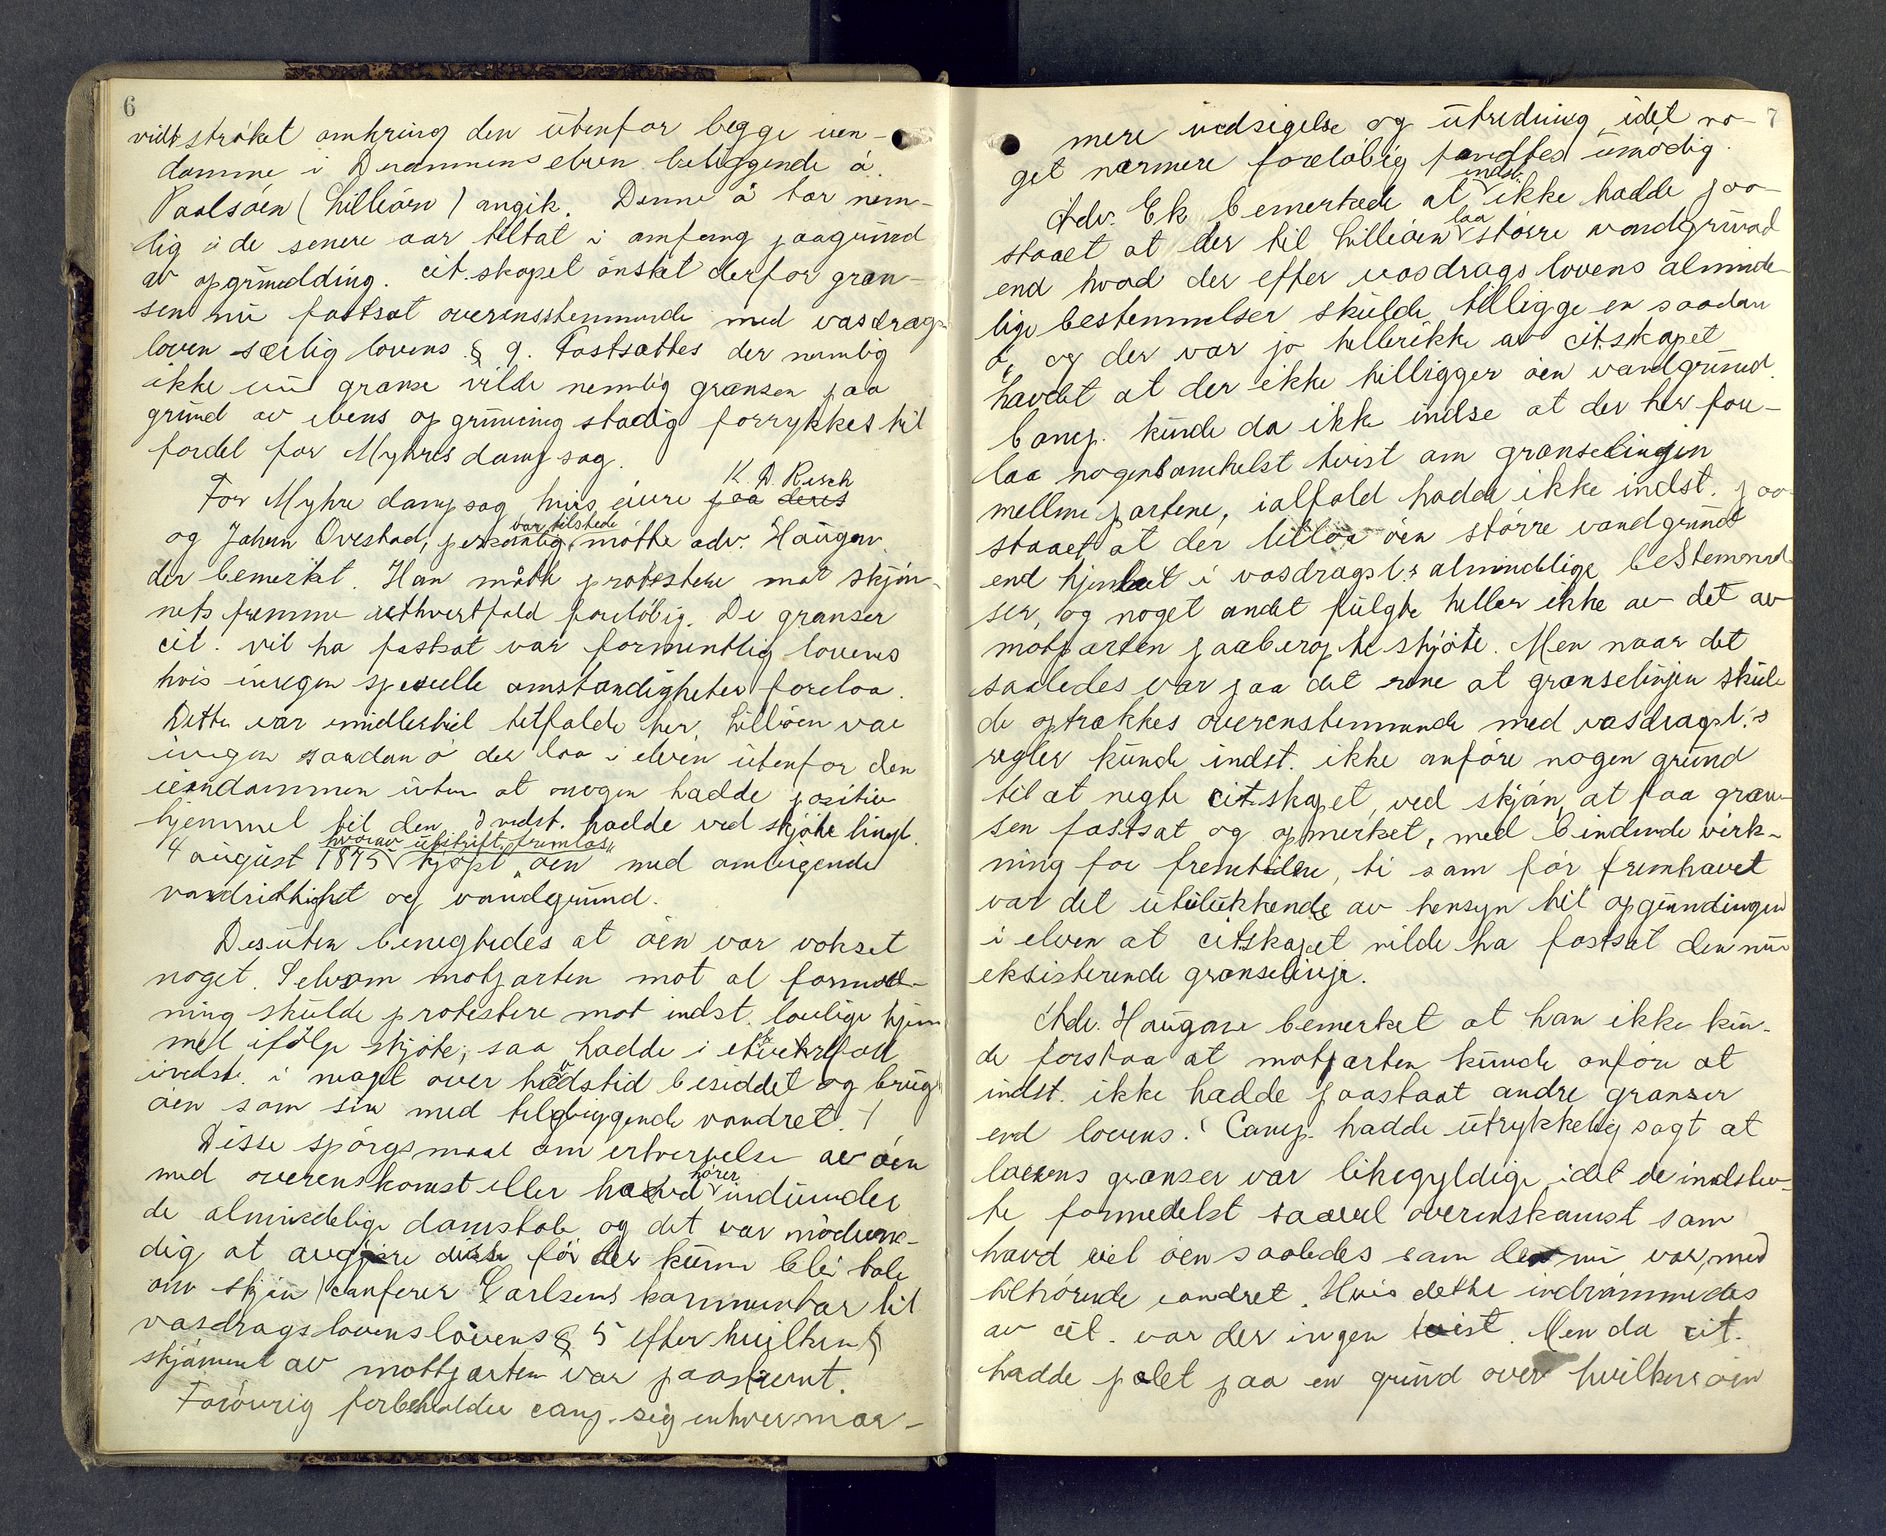 6
vidt strøket omkring den utenfor begge ien-
domme i Drammenselven beliggende ö
Paalsöen (Lilleöen) angik. Denne ö har nem-
lig i de senere aar tiltat i omfang paagrund
av opgrunding. Cit.skapet önsket derfor græn-
sen nu fastsat overensstemmende med vasdrags
loven særlig lovens § 9. Fastsattes der nemlig
ikke nu grænse vilde nemlig grænsen paa
grund av elvens opgruning stadig forrykkes til
fordel for Myhres dampsag.
K. D. Risch
For Myhre dampsag hvis eiere paa deres
var tilstede
og Johan Ovestad, personlig mötte adv. Haugan
der bemerket. Han mötte protestere mot skjön-
nets fremme ethvertfald foreløbig. De grænser
cit. vil ha fastsat var formentlig lovens
hvis ingen spesielle omstændigheter forelaa.
Dette var imidlertid tilfælde her, Lilleöen var
ingen saadan ö der laa i elven utenfor den
iendommen uten at nogen hadde positiv
hjemmel til den. Indst. hadde ved skjöte tingl.
hvorav utskrift fremlas
4 august 1875 kjöpt öen med omliggende
vandrettighet og vandgrund.
Desuten benegtedes at öen var vokset
noget. Selvom motparten mot al formod-
ning skulde protestere mot indst. lovlige hjem
mel ifölge skjöte, saa hadde i ethvertfald
indst. i meget over hævdstid besiddet og brugt
öen som sin med tilliggende vandret.
Disse spörgsmaal om erhvervelse av öen
hörer
med overenskomst eller hævd ind under
de almindelige domstole og det var nödven-
dig at avgjöre disse för der kunne bli tale
om skjön (conferer Carlsens kommentar til
vasdragslovens lovens § 5 efter hvilken §
skjönnet av motparten var paastevnt.
Forövrig forbeholder comp. sig enhver nær-
7
mere indsigelse og utredning, idet no-
get nærmere foreløbig fandtes unödig.
indst.
Adv. Ek bemerkede at ikke hadde paa-
laa
staaet at der til Lilleöen större vandgrund
end hvad der efter vasdragslovens alminde-
lige bestemmelser skulde tilligge en saadan
ö, og der var jo hellerikke av cit.skapet
hævdet at der ikke tilligger öen vandgrund.
Comp. kunde da ikke indse at der her fore-
laa nogensomhelst tvist om grænselinjen
mellem partene, ialfald hadde ikke indst. paa
staaet at der tillaa öen större vandgrund
end hjemlet i vasdragsl.s almindelige bestemmel
ser, og noget andet fulgte heller ikke av det av
motparten paaberopte skjöte. Men naar det
saaledes var paa det rene at grænselinjen skul
de optrækkes overenstemmende med vasdragsl.s
regler kunde indst. ikke anföre nogen grund
til at negte cit.skapet, ved skjön, at faa græn-
sen fastsat og opmerket, med bindende virk-
ning for fremtiden, ti som för fremhævet
var det utelukkende av hensyn til opgrundingen
i elven at citskapet vilde ha fastsat den nu
eksisterende grænselinje.
Adv. Haugan bemerket at han ikke kun-
de forstaa at motparten kunde anföre at
indst. ikke hadde paastaat andre grænser
end lovens. Comp. hadde utrykkelig sagt at
lovens grænser var likegyldige idet de indstev-
te formedelst saavel overenskomst som
hævd eiet öen saaledes som den nu var, med
tilhörende vandret. Hvis dette indrömmedes
av cit. var der ingen tvist. Men da cit.
hadde pælet paa en grund over hvilken öen